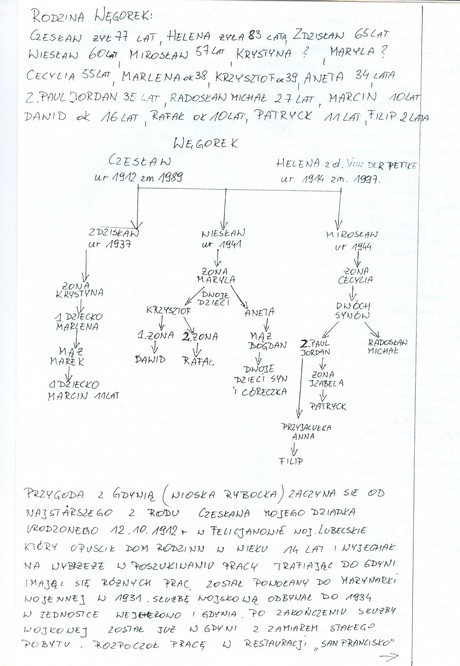 RODZINA WĘGOREK:
CZESŁAW ŻYŁ 77 LAT, HELENA ŻYŁA 83 LATA, ZDZISŁAW 65 LAT
WIESŁAW 60 LAT, MIROSŁAW 57 LAT, KRYSTYNA ? MARYLA ?
CECYLIA 55 LAT, MARLENA OK 38, KRZYSZTOF OK 39, ANETA 34 LATA
Z. PAUL JORDAN 35 LAT, RADOSŁAW MICHAŁ 27 LAT, MARCIN 10 LAT
DAWID OK 16 LAT, RAFAŁ OK 10 LAT, PATRYCK 11 LAT, FILIP 2 LATA
WĘGOREK
CZESŁAW HELENA z d. VON DER PETTKE
ur 1912 zm 1989 ur 1914 zm. 1997.
ZDZISŁAW WIESŁAW MIROSŁAW
ur 1937 ur 1941 ur 1944
ŻONA KRYSTYNA
1 DZIECKO MARLENA
MĄŻ MAREK
1 DZIECKO
MARCIN 11 LAT
ŻONA MARYLA
DWOJE DZIECI
KRZYSZTOF ANETA
1. ŻONA 2. ŻONA
DAWID RAFAŁ
MĄŻ BOGDAN
DWOJE
DZIECI SYN
I CÓRECZKA
ŻONA CECYLIA
DWÓCH SYNÓW
Z. PAUL JORDAN
RADOSŁAW MICHAŁ
ŻONA IZABELA
PATRYCK
PRZYJACIÓŁKA
ANNA
FILIP
PRZYGODA Z GDYNIĄ (WIOSKA RYBACKA) ZACZYNA SIĘ OD
NAJSTARSZEGO Z RODU CZESŁAWA MOJEGO DZIADKA
URODZONEGO 12.10.1912 r W FELICJANOWIE WOJ. LUBELSKIE
KTÓRY OPUŚCIŁ DOM RODZINN W WIEKU 14 LAT I WYJECHAŁ
NA WYBRZEŻE W POSZUKIWANIU PRACY TRAFIAJĄC DO GDYNI
IMAJĄC SIĘ RÓŻNYCH PRAC. ZOSTAŁ POWOŁANY DO MARYNARKI
WOJENNEJ W 1931. SŁUŻBĘ WOJSKOWĄ ODBYWAŁ DO 1934
W JEDNOSTCE WEJHEROWO I GDYNIA. PO ZAKOŃCZENIU SŁUŻBY
WOJKOWEJ ZOSTAŁ JUŻ W GDYNI Z ZAMIAREM STAŁEGO
POBYTU. ROZPOCZĄŁ PRACĘ W RESTAURACJI „SAN FRANCISKO"